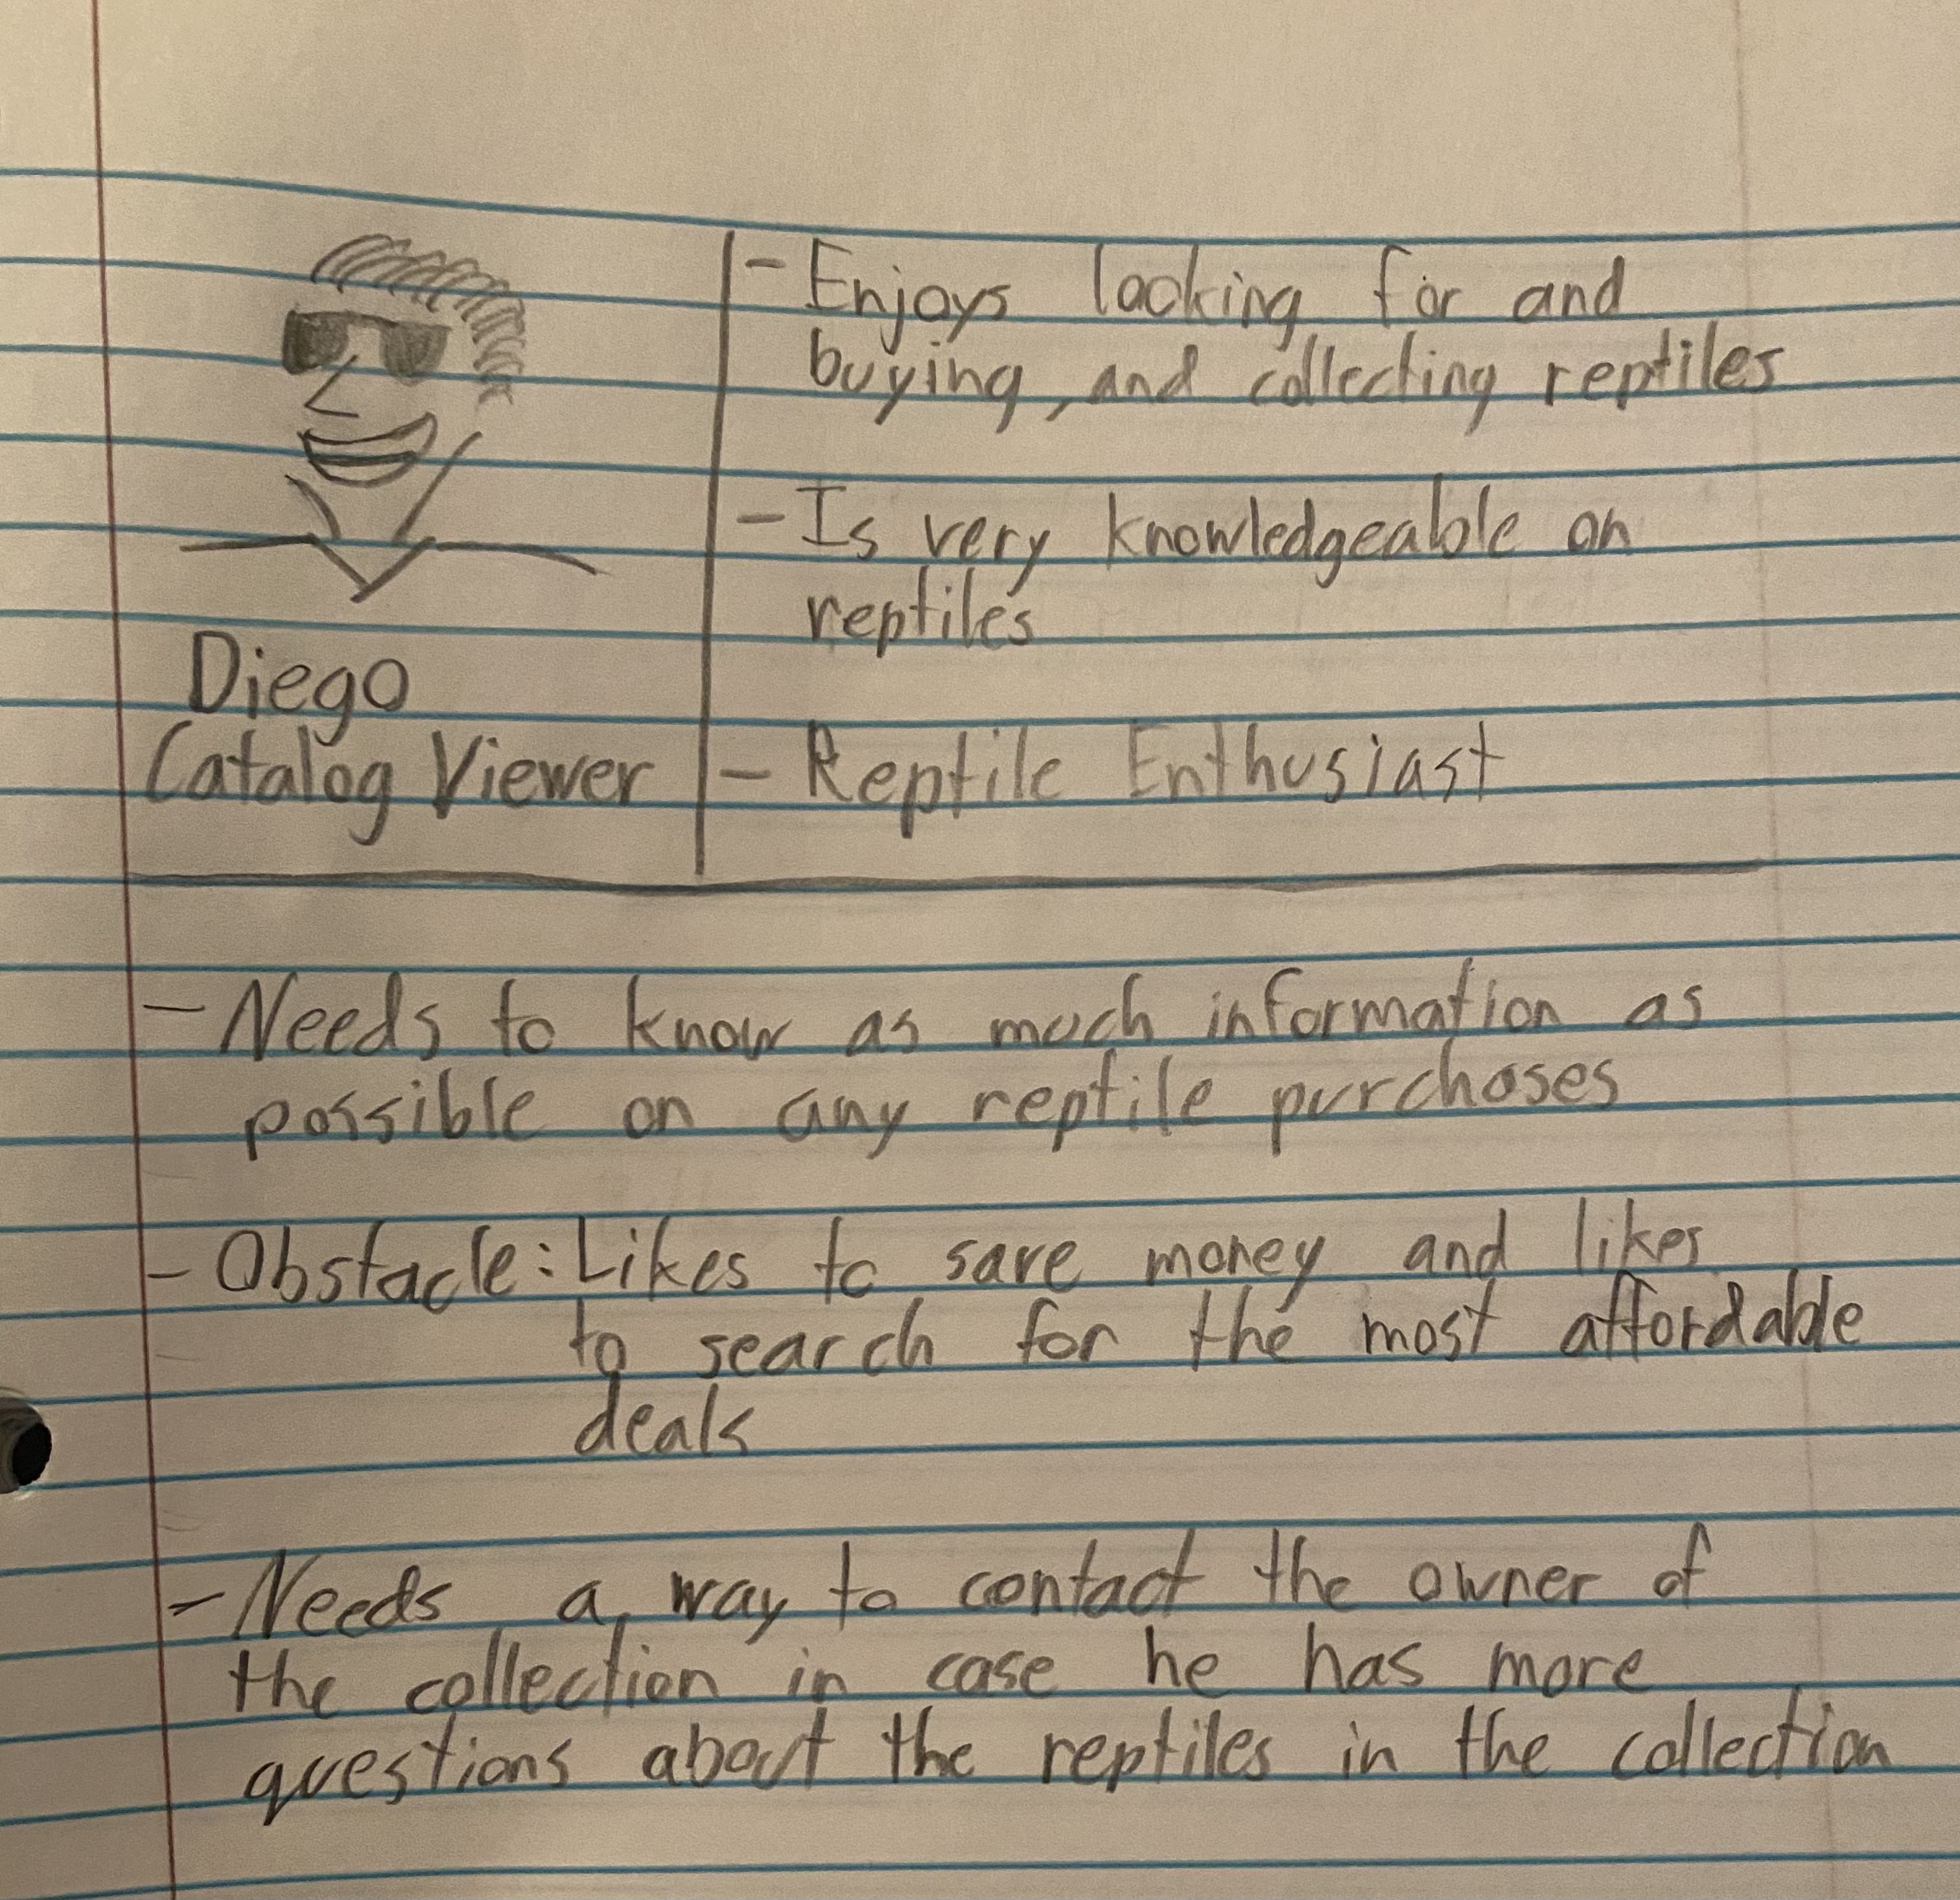 Diego
Catalog Viewer
- Enjoys looking for and
buying, and collecting reptiles
- Is very knowledgeable on
reptiles
- Reptile Enthusiast
- Needs to know as much information as
possible on any reptile purchases
- Obstacle: Likes to save money and likes
to search for the most affordable
deals
- Needs a way to contact the owner of
the collection in case he has more
questions about the reptiles in the collection